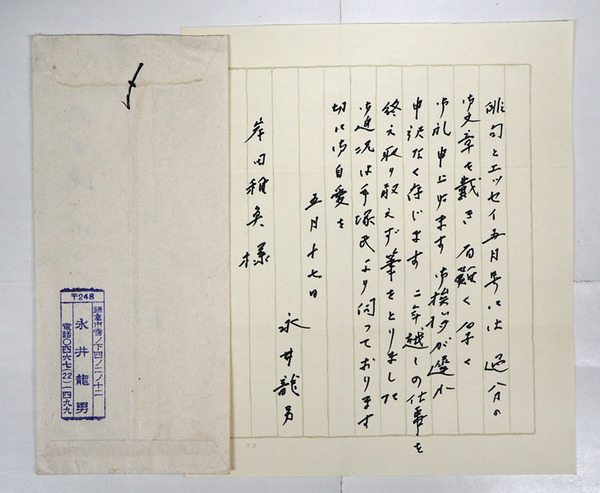 俳句とエッセイ五月号には 過分の
御文章を戴き 有難く 厚く
御礼申上げます 御挨拶が遅れ
申訳なく存じます 二年越しの仕事を
終え取り敢えず筆をとりました
御近況は手塚氏より伺っております
切に御自愛を
五月十七日
永井龍男
岸田稚魚様
〆
〒248
鎌倉市雪ノ下四ノ二ノ十二
永井龍男
電話〇四六七(22)一四九九